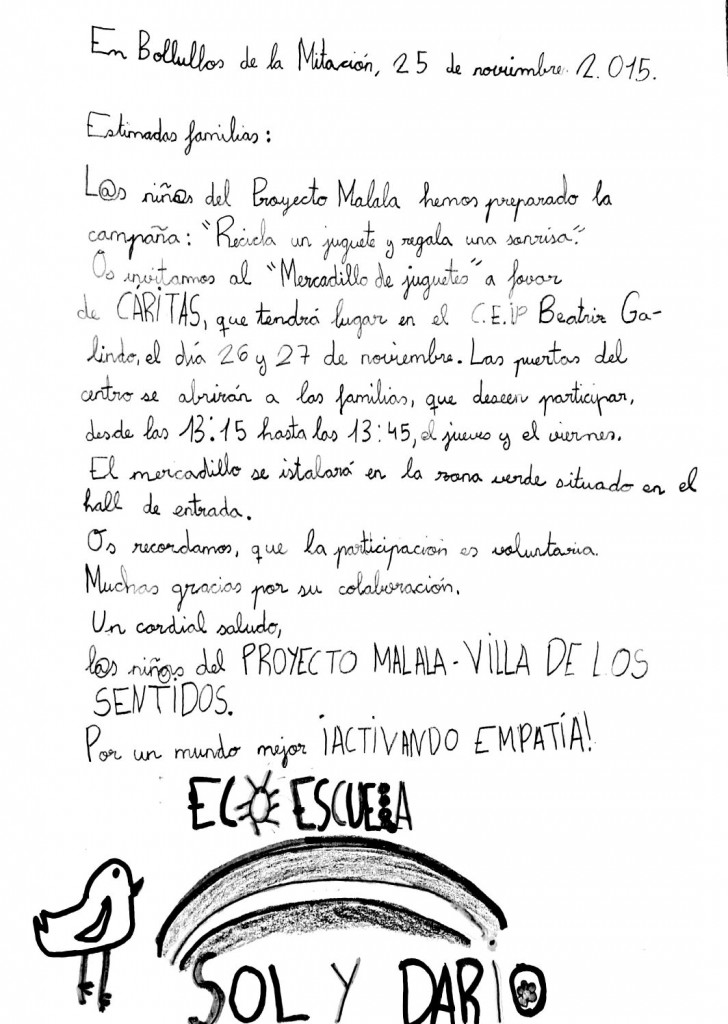 En Bollullos de la Mitación, 25 de noviembre 2.015.
Estimadas familias:
L@s niñ@s del Proyecto Malala hemos preparado la
campaña: "Recicla un juguete y regala una sonrisa".
Os invitamos al "Mercadillo de juguetes" a favor
de CÁRITAS, que tendrá lugar en el C.E.I.P Beatriz Ga-
lindo, el día 26 y 27 de noviembre. Las puertas del
centro se abrirán a las familias, que deseen participar,
desde las 13:15 hasta las 13:45, el jueves y el viernes.
El mercadillo se istalará en la zona verde situado en el
hall de entrada.
Os recordamos, que la participación es voluntaria.
Muchas gracias por su colaboración.
Un cordial saludo,
l@s niñ@s del PROYECTO MALALA-VILLA DE LOS
SENTIDOS.
Por un mundo mejor ¡ACTIVANDO EMPATÍA!
ECOESCUELA
SOL Y DARIO